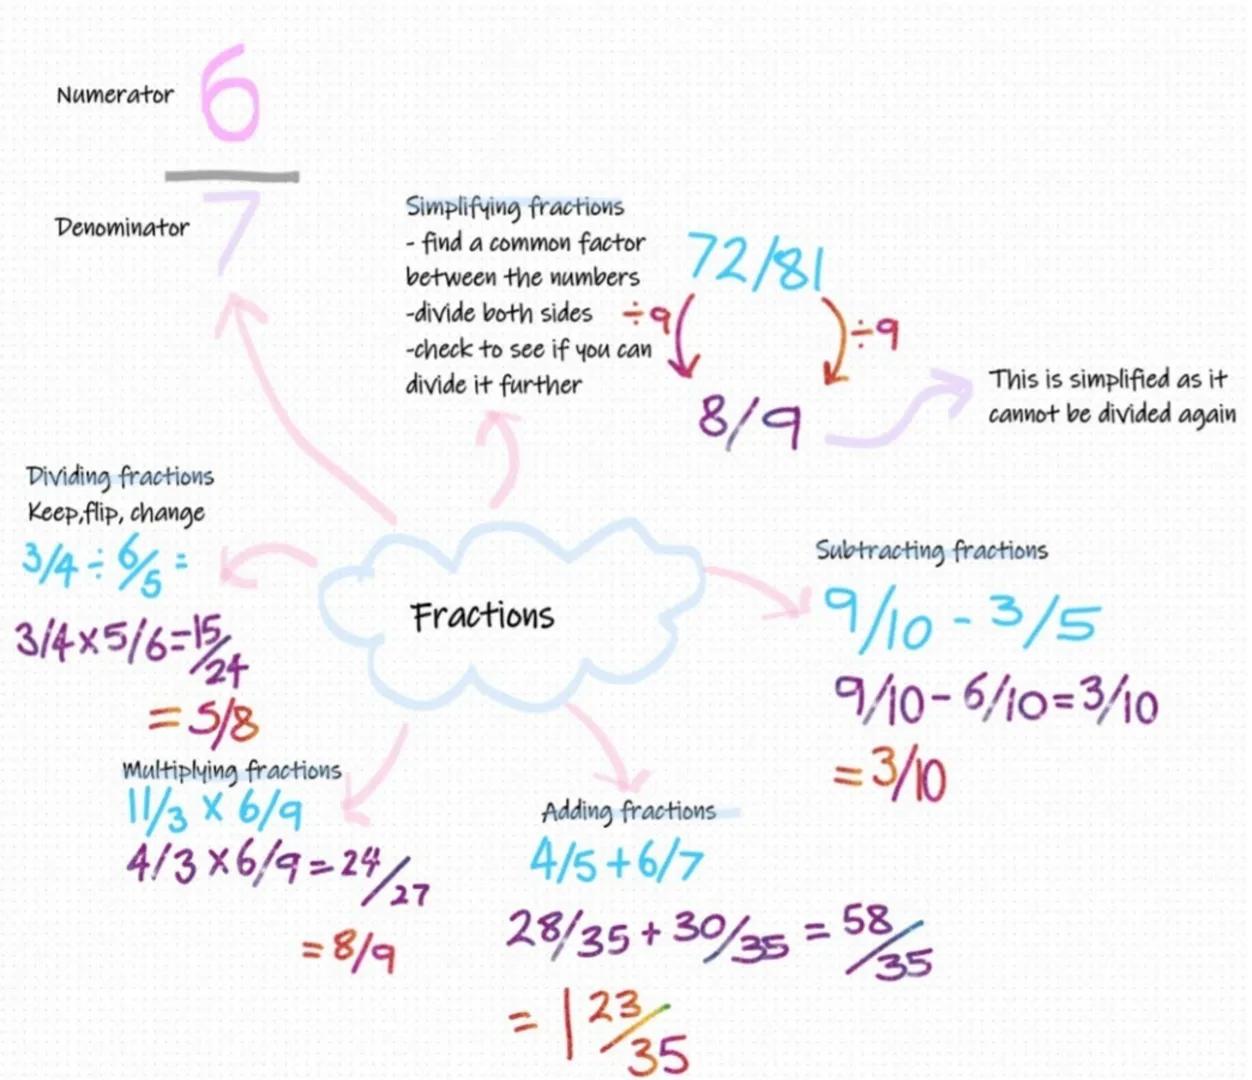 Numerator 6
Denominator 7
Simplifying fractions
- find a common factor
between the numbers
-divide both sides
-check to see if you can
divide it further
72/81
÷9 ÷9
8/9
This is simplified as it
cannot be divided again
Dividing fractions
Keep,flip, change
3/4 ÷ 6/5 =
3/4 x 5/6 = 15/24
= 5/8
Fractions
Subtracting fractions
9/10 - 3/5
9/10 - 6/10 = 3/10
= 3/10
Multiplying fractions
11/3 x 6/9
4/3 x 6/9 = 24/27
= 8/9
Adding fractions
4/5 + 6/7
28/35 + 30/35 = 58/35
= 1 23/35